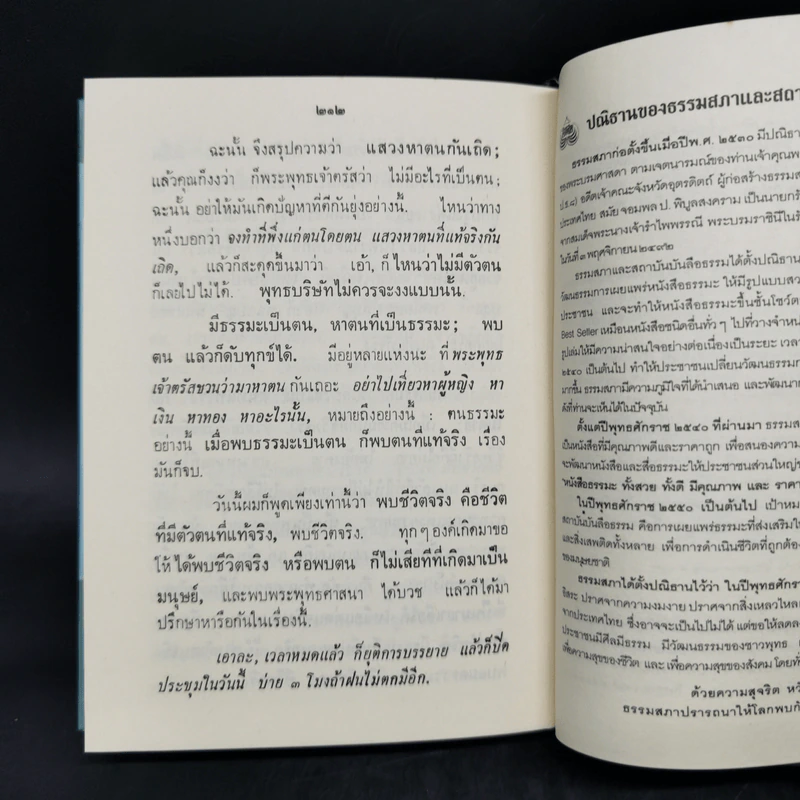 ๒๑๒
ฉะนั้น จึงสรุปความว่า แสวงหาตนกันเถิด;
แล้วคุณก็งงว่า ก็พระพุทธเจ้าตรัสว่า ไม่มีอะไรที่เป็นตน;
ฉะนั้น อย่าให้มันเกิดปัญหาที่ตีกันยุ่งอย่างนี้. ไหนว่าทาง
หนึ่งบอกว่า จงทำที่พึ่งแก่ตนโดยตน แสวงหาตนที่แท้จริงกัน
เถิด, แล้วก็สะดุดขึ้นมาว่า เอ้า, ก็ไหนว่าไม่มีตัวตน
ก็เลยไปไม่ได้. พุทธบริษัทไม่ควรจะงงแบบนั้น.
มีธรรมะเป็นตน, หาตนที่เป็นธรรมะ; พบ
ตน แล้วก็ดับทุกข์ได้. มีอยู่หลายแห่งนะ ที่พระพุทธ
เจ้าตรัสชวนว่ามาหาตนกันเถอะ อย่าไปเที่ยวหาผู้หญิง หา
เงิน หาทอง หาอะไรนั้น, หมายถึงอย่างนี้ : ตนธรรมะ
อย่างนี้ เมื่อพบธรรมะเป็นตน ก็พบตนที่แท้จริง เรื่อง
มันก็จบ.
วันนี้ผมก็พูดเพียงเท่านี้ว่า พบชีวิตจริง คือชีวิต
ที่มีตัวตนที่แท้จริง, พบชีวิตจริง. ทุกๆองค์เกิดมาขอ
ให้ได้พบชีวิตจริง หรือพบตน ก็ไม่เสียทีที่เกิดมาเป็น
มนุษย์, และพบพระพุทธศาสนา ได้บวช แล้วก็ได้มา
ปรึกษาหารือกันในเรื่องนี้.
เอาละ, เวลาหมดแล้ว ก็ยุติการบรรยาย แล้วก็ปิด
ประชุมในวันนี้ บ่าย ๓ โมงถ้าฝนไม่ตกมีอีก.
ปณิธานของธรรมสภาและสถา
ธรรมสภาก่อตั้งขึ้นเมื่อปีพ.ศ. ๒๕๓๐ มีปณิธา
ของพระบรมศาสดา ตามเจตนารมณ์ของท่านเจ้าคุณพ
ป.ธ.๘) อดีตเจ้าคณะจังหวัดอุตรดิตถ์ ผู้ก่อสร้างธรรมส
ประเทศไทย สมัย จอมพล ป. พิบูลสงคราม เป็นนายกรั
จากสมเด็จพระนางเจ้ารำไพพรรณี พระบรมราชินีในรั
ในวันที่ ๓ พฤศจิกายน ๒๔๙๒
ธรรมสภาและสถาบันบันลือธรรมได้ตั้งปณิธาน
วัฒนธรรมการเผยแพร่หนังสือธรรมะ ให้มีรูปแบบสว
ประชาชน และจะทำให้หนังสือธรรมะขึ้นชั้นโชว์ต
Best Seller เหมือนหนังสือชนิดอื่นทั่วๆ ไปที่วางจำหน
รูปเล่มให้มีความน่าสนใจอย่างต่อเนื่องเป็นระยะ เวลา
๒๕๔๐ เป็นต้นไป ทำให้ประชาชนเปลี่ยนวัฒนธรรมก
มากขึ้น ธรรมสภามีความภูมิใจที่ได้นำเสนอ และพัฒนาก
ดังที่ท่านจะเห็นได้ในปัจจุบัน
ตั้งแต่ปีพุทธศักราช ๒๕๔๐ ที่ผ่านมา ธรรมส
เป็นหนังสือที่มีคุณภาพดีและราคาถูก เพื่อสนองความ
จะพัฒนาหนังสือและสื่อธรรมะให้ประชาชนส่วนใหญ่ข
หนังสือธรรมะ ทั้งสวย ทั้งดี มีคุณภาพ และ ราคา
ในปีพุทธศักราช ๒๕๕๐ เป็นต้นไป เป้าหม
สถาบันบันลือธรรม คือการเผยแพร่ธรรมะที่ส่งเสริมให้
และสิ่งเสพติดทั้งหลาย เพื่อการดำเนินชีวิตที่ถูกต้อ
ของมนุษยชาติ
ธรรมสภาได้ตั้งปณิธานไว้ว่า ในปีพุทธศักรา
อิสระ ปราศจากความงมงาย ปราศจากสิ่งเหลวไหล
จากประเทศไทย ซึ่งอาจจะเป็นไปไม่ได้ แต่ขอให้ลดล
ประชาชนมีศีลมีธรรม มีวัฒนธรรมของชาวพุทธ
เพื่อความสุขของชีวิต และ เพื่อความสุขของสังคม โดยทั
ด้วยความสุจริต หวั
ธรรมสภาปรารถนาให้โลกพบกั